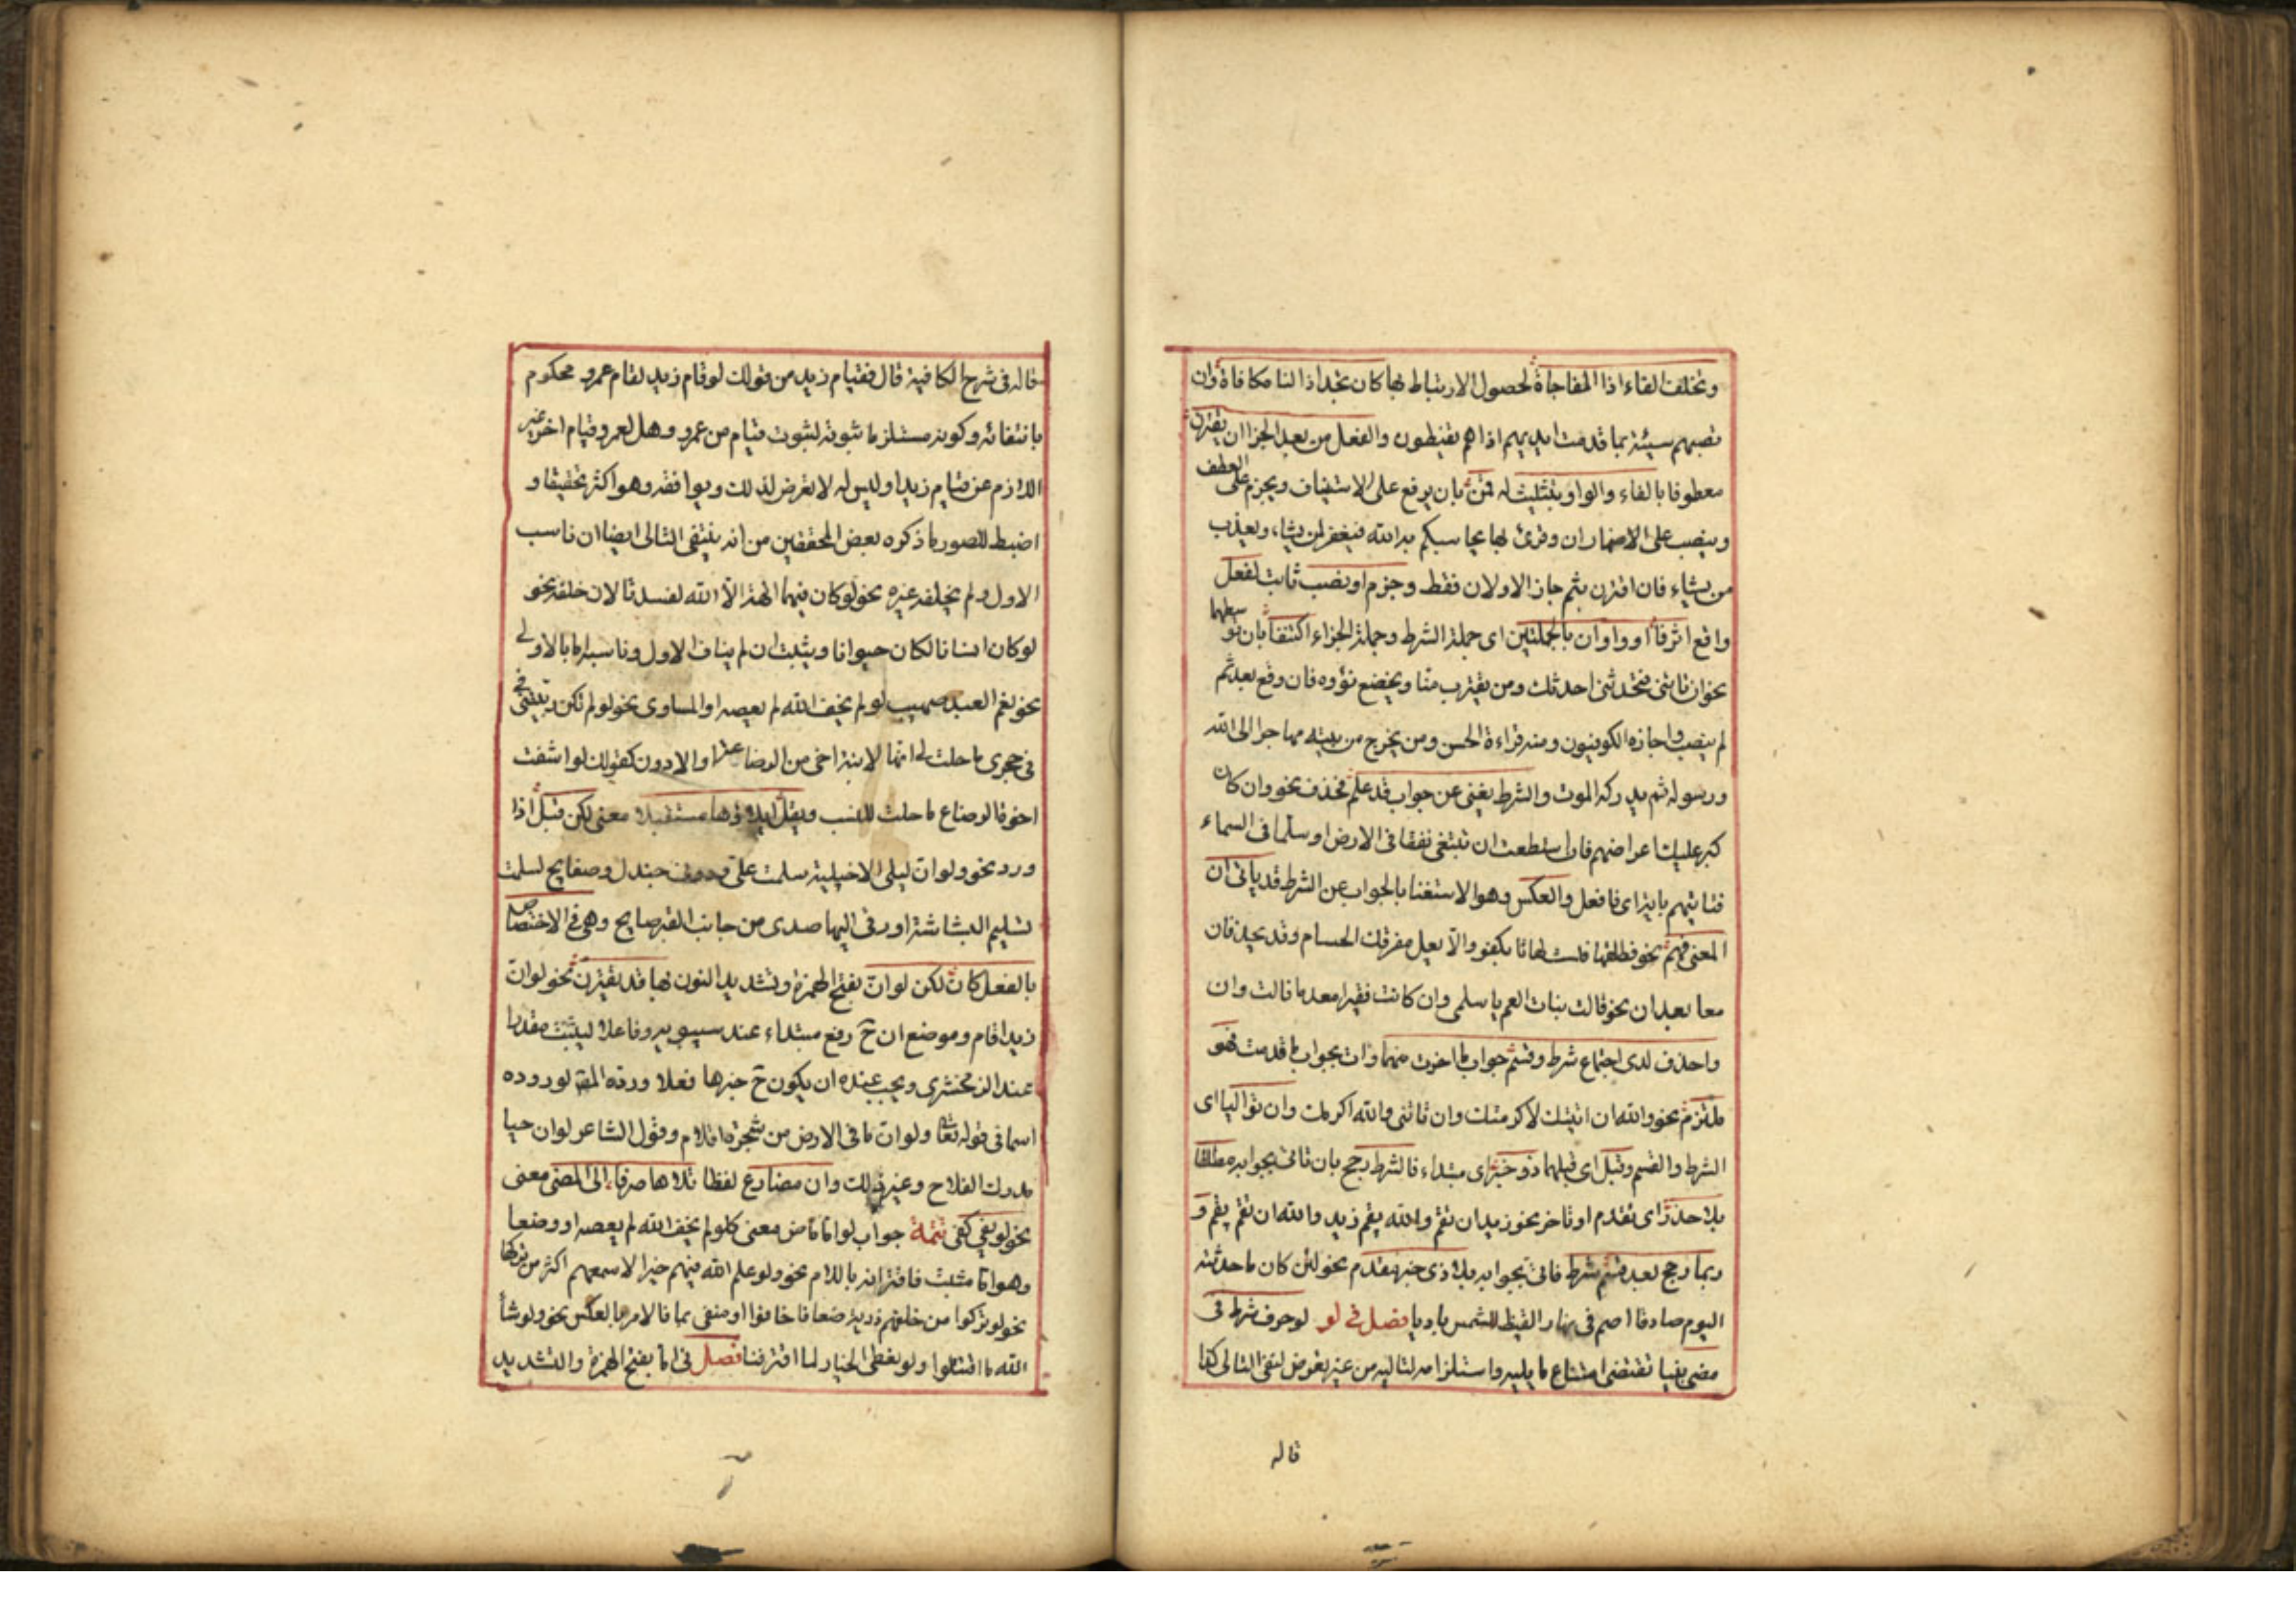 وتخلف الفاء اذا المفاجاة لحصول الارتباط بها كان تجد اذا لنا مكافاة وان
تصبهم سيئة بما قدمت ايديهم اذا هم يقنطون والفعل من بعد الجزا ان يقترن
معطوفا بالفاء والواو بتثليث له قمن بان يرفع على الاستيناف ويجزم على العطف
وينصب على الاضمار ان وقرئ بها يحاسبكم به الله فيغفر لمن يشاء ويعذب
من يشاء فان اقترن بثم جاز الاولان فقط وجزم او نصب ثابت لفعل
واقع اثر فا او واو ان بالجملتين اى جملة الشرط وجملة الجزاء اكتنفا بان توسطهما
نحو ان تاتنى فتحدثنى احدثك ومن يقترب منا ويخضع نؤوه فان وقع بعد ثم
لم ينصب واجازه الكوفيون ومنه قراءة الحسن ومن يخرج من بيته مهاجرا الى الله
ورسوله ثم يدركه الموت والشرط يغنى عن جواب قد علم فحذف نحو وان كان
كبر عليك اعراضهم فان استطعت ان تبتغى نفقا فى الارض او سلما فى السماء
فتاتيهم باية اى فافعل والعكس وهو الاستغنا بالجواب عن الشرط قد ياتى ان
المعنى فهم نحو فطلقها فلست لها بكفو والا يعل مفرقك الحسام وقد يحذفان
معا بعد ان نحو قالت بنات العم يا سلمى وان كانت فقيرا معدما قالت وان
واحذف لدى اجتماع شرط وقسم جواب ما اخرت منهما وات بجواب ما قدمت فهو
ملتزم نحو والله ان اتيتك لاكرمتك وان تاتنى والله اكرمك وان تواليا اى
الشرط والقسم وقبل اى قبلهما ذو خبر اى مبتداء فالشرط رجح بان تاتى بجوابه مطلقا
بلا حذر اى تقدم او تاخر نحو زيد ان تقم والله يقم زيد والله ان تقم يقم و
ربما رجح بعد قسم شرط فاتى بجوابه بلا ذى خبر مقدم نحو لئن كان ما حدثته
اليوم صادقا اصم فى نهار القيظ للشمس باديا فصل فى لو لو حرف شرط فى
مضى بقيا تقتضى امتناع ما يليه واستلزامه لتاليه من غير تعرض لنفى التالى كذا
قاله
قاله فى شرح الكافية قال فقيام زيد من قولك لو قام زيد لقام عمرو محكوم
بانتفائه وكونه مستلزما ثبوته لثبوت قيام من عمرو وهل لعمرو قيام اخر غير
اللازم عن قيام زيد او ليس له لا تعرض لذلك ويوافقه وهو اكثر تحقيقا و
اضبط للصور ما ذكره بعض المحققين من انه ينتفى التالى ايضا ان ناسب
الاول ولم يخلفه غيره نحو لو كان فيهما الهة الا الله لفسدتا لان خلفه نحو
لو كان انسانا لكان حيوانا ويثبت ان لم يناف الاول وناسبه اما بالاولى
نحو نعم العبد صهيب لو لم يخف الله لم يعصه او المساوى نحو لو لم تكن ربيبتى
فى حجرى ما حلت لى انها لابنة اخى من الرضاعة او الادون كقولك لو انتفت
اخوة الرضاع ما حلت للنسب ويقل ايلاؤها مستقبلا معنى لكن قبل اذا
ورد نحو ولو ان ليلى الاخيلية سلمت على ودونى جندل وصفايح لسلمت
تسليم البشاشة او زقى اليها صدى من جانب القبر صايح وهى فى الاختصاص
بالفعل كان لكن لو ان بفتح الهمزة وتشديد النون بها قد تقترن نحو لو ان
زيدا قام وموضع ان ح رفع مبتداء عند سيبويه وفاعلا ليثبت مقدرا
عند الزمخشرى ويجب عنده ان يكون ح خبرها فعلا ورده المص لوروده
اسما فى قوله تعا ولو ان ما فى الارض من شجرة اقلام وقول الشاعر لو ان حيا
مدرك الفلاح وغير ذلك وان مضارع لفظا تلاها صرفا الى المضى معنى
نحو لو يفى كفى تتمة جواب لو اما ماض معنى كلو لم يخف الله لم يعصه او وضعا
وهو اما مثبت فاقترانه باللام نحو ولو علم الله فيهم خيرا لاسمعهم اكثر من تركها
نحو لو تركوا من خلفهم ذرية ضعافا خافوا او منفى بما فالامر بالعكس نحو ولو شاء
الله ما اقتتلوا ولو نعطى الخيار لما افترقنا فصل فى اما بفتح الهمزة والتشديد